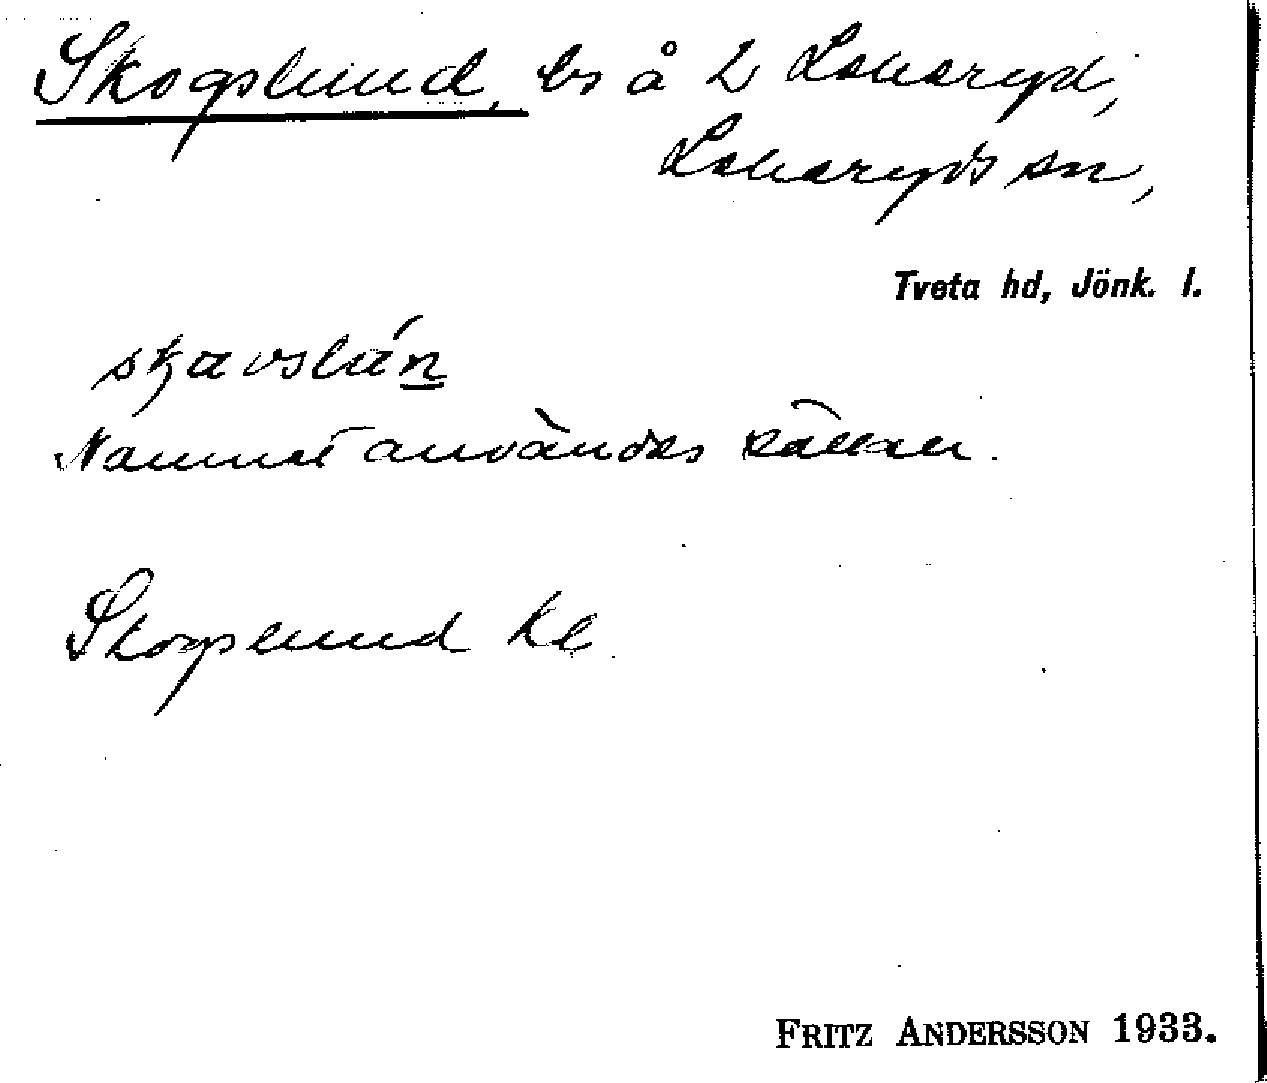 Skogslund, bs å 2 Lekeryd,
Lekeryds sn,
Tveta hd, Jönk. l.
Namnet användes sällan.
Skogslund kl
FRITZ ANDERSSON 1933.